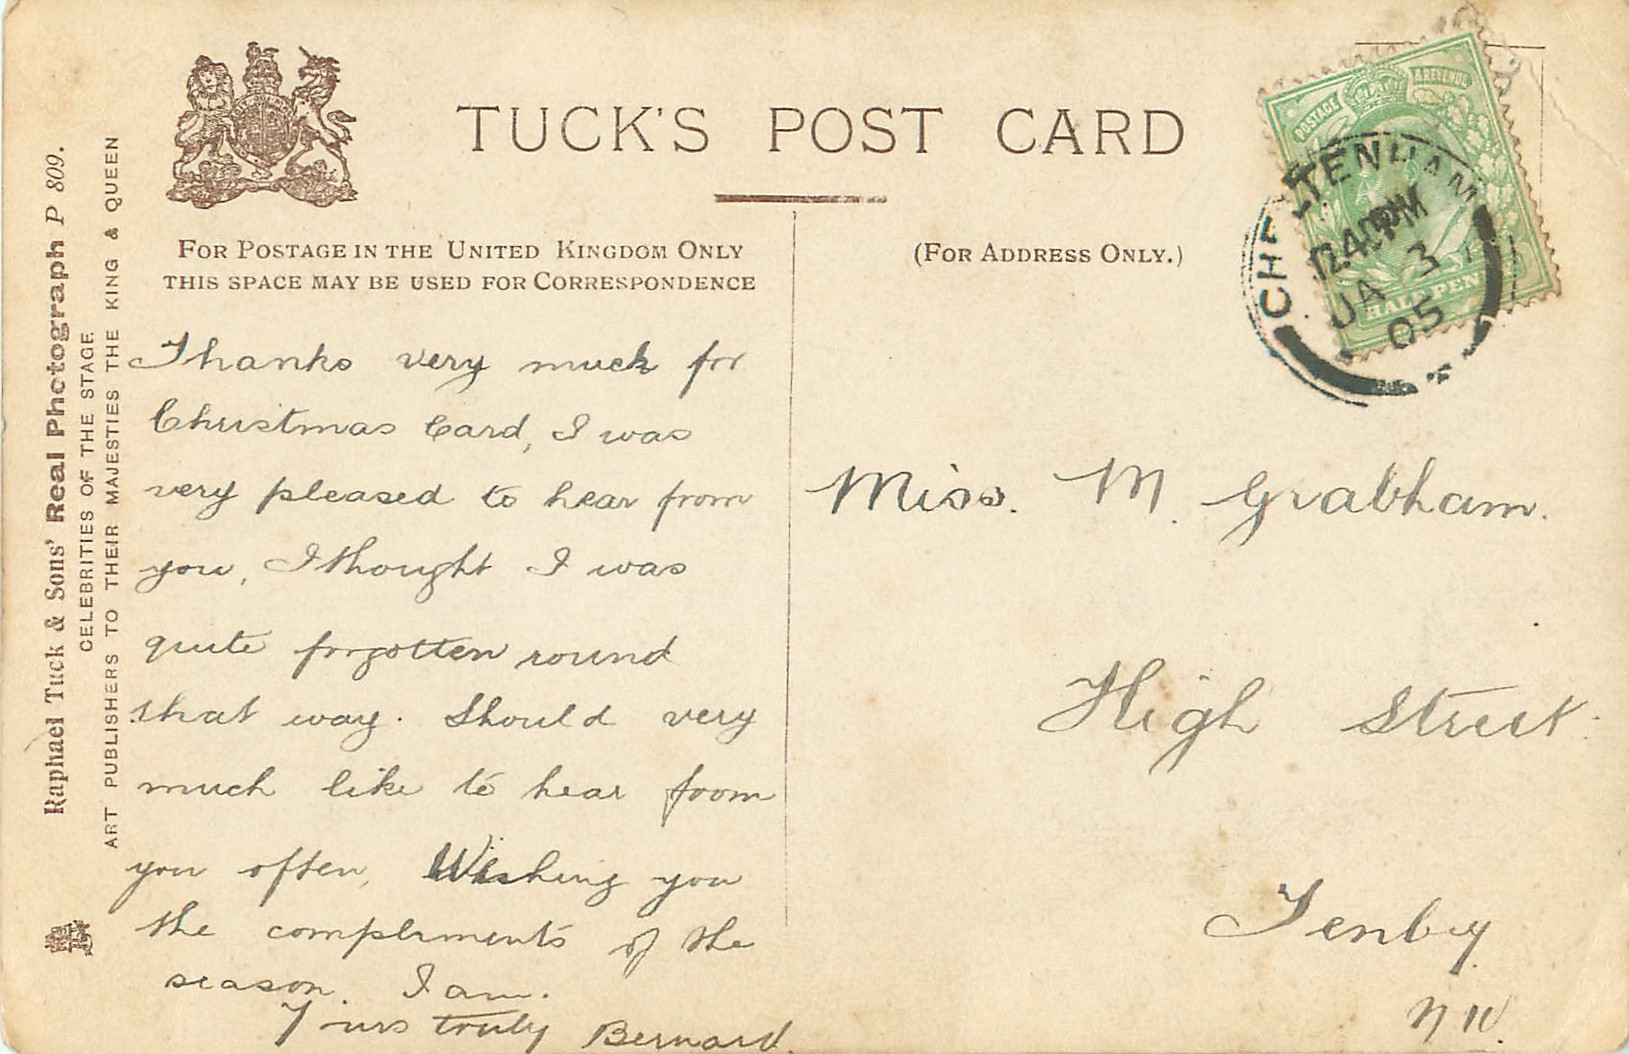 TUCK'S POST CARD
FOR POSTAGE IN THE UNITED KINGDOM ONLY
THIS SPACE MAY BE USED FOR CORRESPONDENCE
(FOR ADDRESS ONLY.)
POSTAGE & REVENUE
HALFPENNY
CHELTENHAM
12.40PM
JA 3
05
Raphael Tuck & Sons' Real Photograph P 809.
CELEBRITIES OF THE STAGE
ART PUBLISHERS TO THEIR MAJESTIES THE KING & QUEEN
Thanks very much for
Christmas Card, I was
very pleased to hear from
you, I thought I was
quite forgotten round
that way. Should very
much like to hear from
you often, Wishing you
the compliments of the
season. I am.
Yours truly Bernard.
Miss. M. Grabham.
High Street.
Tenby